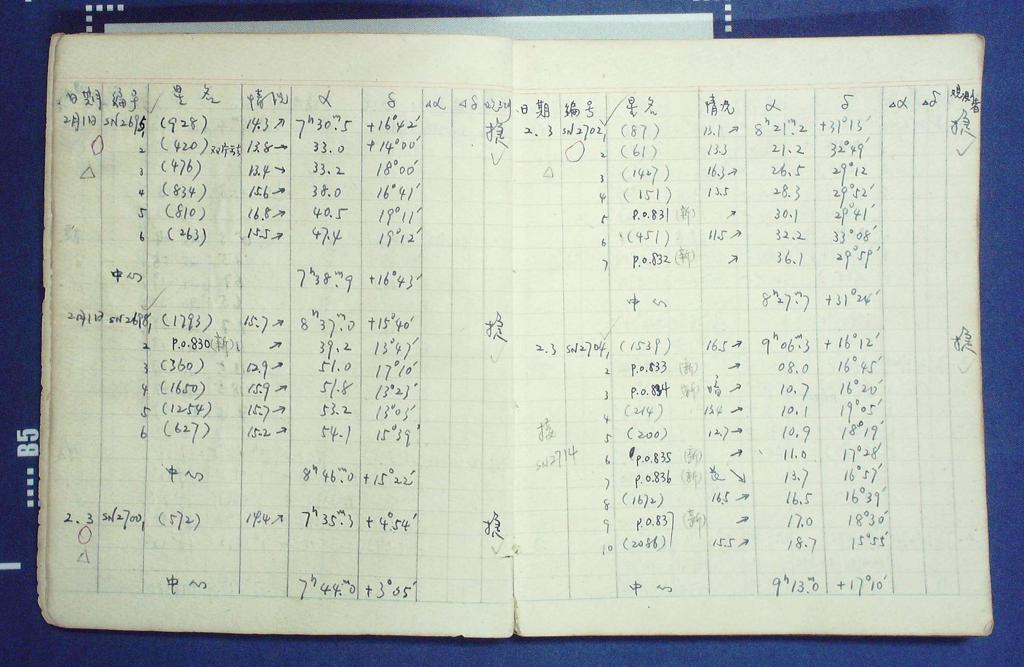 日期 编号 星名 情况 α δ Δα Δδ
2月1日 SN2695 1 (928) 14.3↗ 7ʰ30ᵐ.5 +16°42′
2 (420) 13.8→ 33.0 +14°00′
3 (476) 13.4→ 33.2 18°00′
4 (834) 15.6↗ 38.0 16°41′
5 (810) 16.8↗ 40.5 19°11′
6 (263) 15.5↗ 47.4 19°12′
中心 7ʰ38ᵐ.9 +16°43′
2月1日 SN2698 1 (1793) 15.7↗ 8ʰ37ᵐ.0 +15°40′
2 P.O.830(新) ↗ 39.2 13°47′
3 (360) 12.9↗ 51.0 17°10′
4 (1650) 15.9↗ 51.8 13°23′
5 (1254) 15.7↗ 53.2 13°03′
6 (627) 15.2↗ 54.1 15°39′
中心 8ʰ46ᵐ.0 +15°22′
2.3 SN2700 1 (572) 14.4↗ 7ʰ35ᵐ.3 +4°54′
△
中心 7ʰ44ᵐ.0 +3°05′
日期 编号 星名 情况 α δ Δα Δδ 观测者
2.3 SN2702 1 (87) 13.1↗ 8ʰ21ᵐ.2 +31°13′
2 (61) 13.3 21.2 32°49′
3 (1427) 16.3↗ 26.5 29°12′
4 (151) 13.5 28.3 29°52′
5 P.O.831(新) ↗ 30.1 29°41′
6 (451) 11.5↗ 32.2 33°08′
7 P.O.832(新) ↗ 36.1 29°59′
中心 8ʰ27ᵐ.7 +31°24′
2.3 SN2704 1 (1539) 16.5↗ 9ʰ06ᵐ.3 +16°12′
2 P.O.833(新) ↗ 08.0 16°45′
3 P.O.834(新) 暗↗ 10.7 16°20′
4 (214) 13.4→ 10.1 19°05′
接 5 (200) 12.7→ 10.9 18°19′
SN2714 6 P.O.835(新) 11.0 17°28′
7 P.O.836(新) ↘ 13.7 16°57′
8 (1672) 16.5↗ 16.5 16°39′
9 P.O.837(新) ↗ 17.0 18°30′
10 (2086) 15.5↗ 18.7 15°55′
中心 9ʰ13ᵐ.0 +17°10′
B5